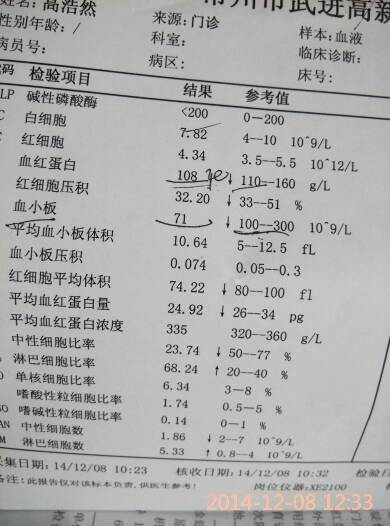 姓名: 高浩然 常州市武进高新
性别年龄: / 来源: 门诊 样本: 血液
病员号: 科室: 临床诊断:
病区: 床号:
代码 检验项目 结果 参考值
LP 碱性磷酸酶 <200 0--200
C 白细胞 7.82 4--10 10^9/L
C 红细胞 4.34 3.5--5.5 10^12/L
血红蛋白 108 ↓ 110--160 g/L
红细胞压积 32.20 ↓ 33--51 %
血小板 71 ↓ 100--300 10^9/L
平均血小板体积 10.64 5--12.5 fL
血小板压积 0.074 0.05--0.3
红细胞平均体积 74.22 ↓ 80--100 fl
平均血红蛋白量 24.92 ↓ 26--34 pg
平均血红蛋白浓度 335 320--360 g/L
中性细胞比率 23.74 ↓ 50--77 %
淋巴细胞比率 68.24 ↑ 20--40 %
单核细胞比率 6.34 3--8 %
嗜酸性粒细胞比率 1.74 0.5--5 %
SO 嗜碱性粒细胞比率 0.14 0--1 %
AN 中性细胞数 1.86 ↓ 2--7 10^9/L
M 淋巴细胞数 5.33 ↑ 0.8--4 10^9/L
采集日期: 14/12/08 10:23 核收日期: 14/12/08 10:32 检验日
备注: 此报告仅对该标本负责,供医生参考! 岗位仪器: XE2100
2014-12-08 12:33